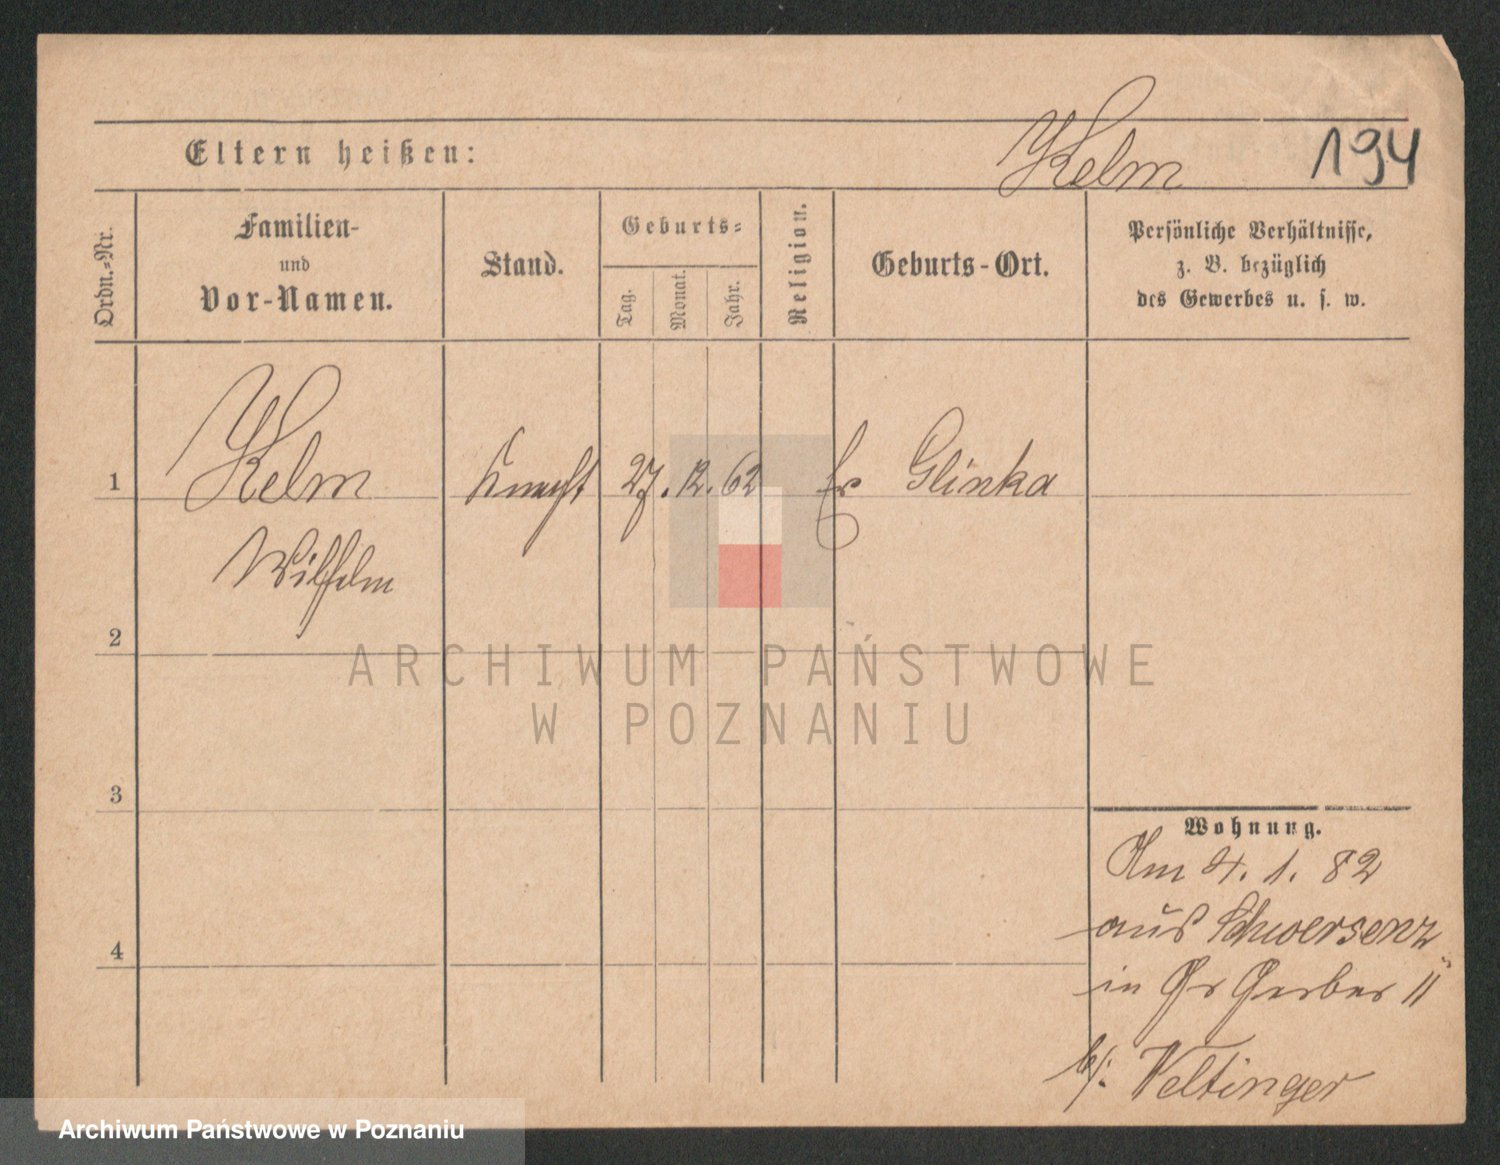 Eltern heißen:
Kelm
194
Ordn.=Nr.
Familien-
und
Vor-Namen.
Stand.
Geburts=
Tag.
Monat.
Jahr.
Religion.
Geburts-Ort.
Persönliche Verhältnisse,
z. B. bezüglich
des Gewerbes u. s. w.
1
Kelm
Knecht
27. 12. 62
Ev
Glinka
Wilhelm
2
3
4
Wohnung.
Am 4. 1. 82
aus Schwersenz
in Gr Gerber 11
b/: Veltinger
ARCHIWUM PAŃSTWOWE
W POZNANIU
Archiwum Państwowe w Poznaniu